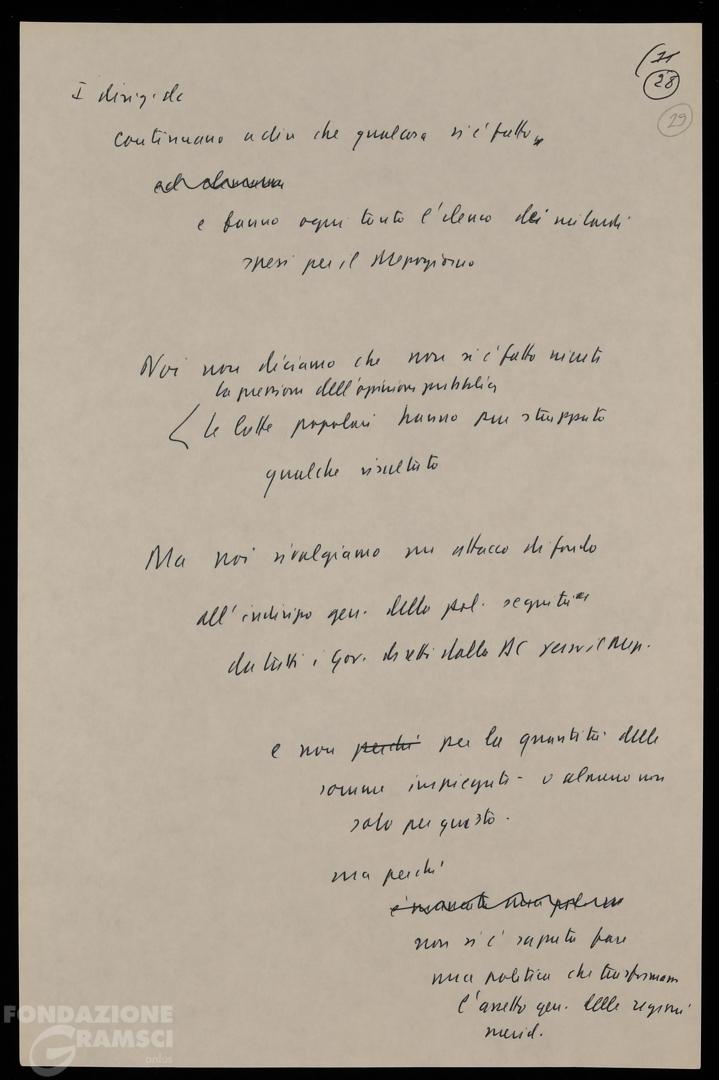 (71
28
29
I dirig. dc
continuano a dire che qualcosa si è fatto,
ed
e fanno ogni tanto l'elenco dei miliardi
spesi per il Mezzogiorno
Noi non diciamo che non si è fatto niente
la pressione dell'opinione pubblica
le lotte popolari hanno pur strappato
qualche risultato
Ma noi rivolgiamo un attacco di fondo
all'indirizzo gen. della pol. seguita
da tutti i Gov. diretti dalla DC verso il Mezz.
e non perché per la quantità delle
somme impiegate - o almeno non
solo per questo.
ma perché
è mancata una pol.
non si è saputa fare
una politica che trasformasse
l'assetto gen. delle regioni
merid.
FONDAZIONE
GRAMSCI
onlus